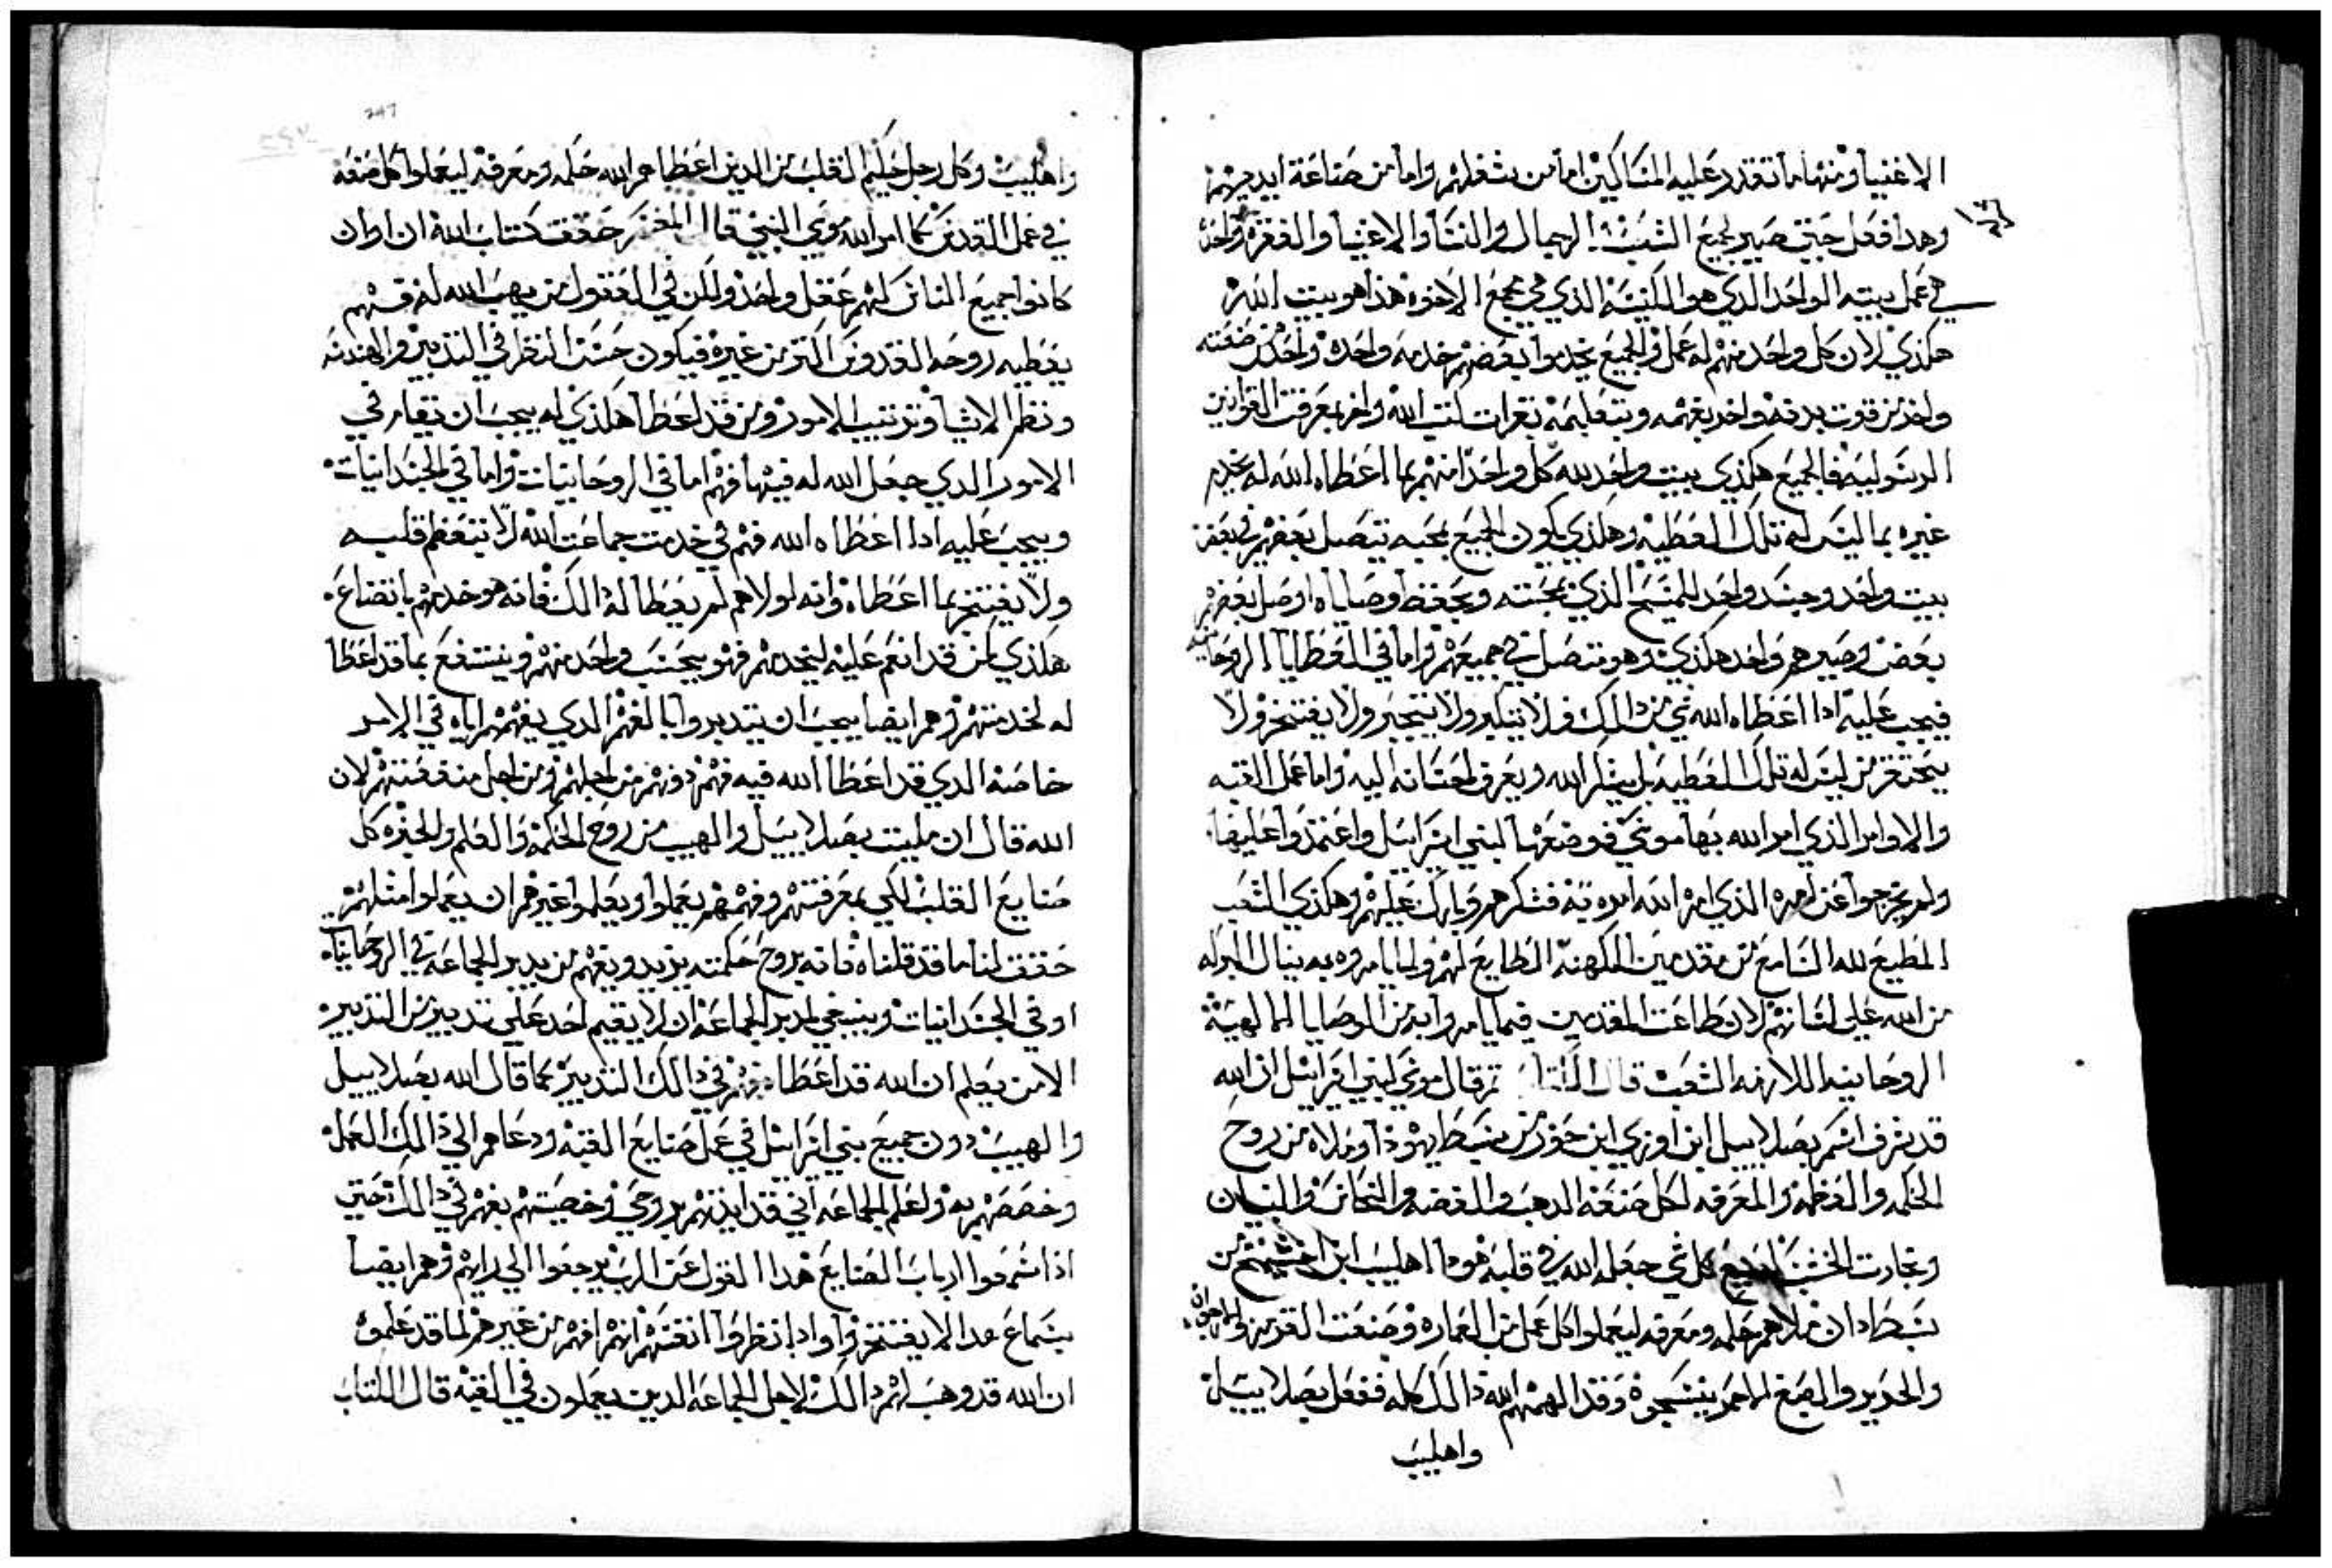 الاغنيا ومنها ما تقدر عليه المساكين اما من شغلهم واما من صناعة ايديهم
وهدا فعل حتى صير لجميع الشعب الرجال والنسا والاغنيا والفقره واحد
في عمل بيته الواحد الدي هو الكنيسه الذي هي مجمع الاخوه هذا هو بيت الله
هكذي لان كل واحد منهم له عمل والجميع يخدموا بعضهم خدمه واحده واحد من صنعته
واحد من قوت بدنه واحد بفهمه وبتعليمه بقرات كتب الله واخر بمعرفت القوانين
الرسوليه فالجميع هكذي بيت واحد لله كل واحدا منهم بما اعطاه الله له يخدم
غيره بما ليس له تلك العطيه وهكذي يكون الجميع بمحبه يتصل بعضهم في بعض
بيت واحد وجسد واحد للمسيح الذي بمحبته وبحفظ وصاياه اوصل بعضهم
بعض وصيرهم واحد هكذي وهو متصل في جميعهم واما في العطايا الروحانيه
فيجب عليه ادا اعطاه الله شي من دالك فلا يتكبر ولا يتجبر ولا يفتخر ولا
يحتقر من ليس له تلك العطيه بل يشكر الله ويعرف احسانه اليه واما عمل القبه
والاوامر الذي امر الله بها موسى فوضعها لبني اسراييل واعتمدوا عليها
ولم يخرجوا عن امره الذي امر الله امره به فشكرهم وبارك عليهم وهكذي الشعب
المطيع لله السامع من مقدمين الكهنة الطايع لهم ولما يامروه به ينال البركه
من الله على لسانهم لان طاعت المقدمين فيما يامروا به من الوصايا الالهية
الروحانيه اللازمه الشعب قال الكتاب ثم قال موسى لبني اسراييل ان الله
قد شرف اسم بصلاييل ابن اوري ابن حور من سبط يهودا وملاه من روح
الحكمه والفطمه والمعرفه لكل صنعة الدهب والفضه والنحاس والبنيان
ونجارت الخشب كل شي جعله الله في قلبه هودا اهليب ابن من
سبط دان ملاهم حكمه ومعرفه ليعملوا كل عمل من العماره وصنعت القدس
والحديد والصبغ الاحمر ينسجوه وقد الهمهم الله دالك كله ففعل بصلاييل
واهليب
واهليب وكل رجل حكيم القلب من الدين اعطاهم الله حكمه ومعرفه ليعملوا كل صنعه
في عمل القدس كما امر الله موسى النبي قال المفسر حقق كتاب الله ان اوان
كانوا جميع الناس لهم عقل واحد ولكن في العقول من يهب الله له قسم
يعطيه روحه القدوس اكتر من غيره فيكون حسن النظر في التدبير والهندسه
ونظر الاشيا وترتيب الامور ومن قد اعطا هكذي له يجب ان يقام في
الامور الدي جعل الله له فيها فهم اما في الروحانيات واما في الجسدانيات
ويجب عليه ادا اعطاه الله فهم في خدمت جماعت الله لا يتعظم قلبه
ولا يفتخر بما اعطاه وانه لولاهم لم يعطا له دالك فانه هو خدمهم باتضاع
هكذي من قد انعم عليه ليخدمهم فهو يحسب واحد منهم وينتفع بما قد اعطا
له لخدمتهم وهم ايضا يجب ان يتدبروا بالفهم الدي يفهمهم اياه في الامر
خاصة الدي قد اعطا الله فيه فهم دونهم من اجلهم ومن اجل منفعتهم لان
الله قال ان مليت بصلاييل والهيب من روح الحكمه والعلم والخبره كل
صنايع القلب لكي بمعرفتهم وفهمهم يعملوا ويعلموا غيرهم ان يعملوا امثلهم
حقق لنا ما قد قلناه فانه بروح حكمته يزيد ويفهم من يدبر الجماعه في الروحانيات
او في الجسدانيات وينبغي لمدبر الجماعه ان لا يقيم احد على تدبير من التدبير
الا من يعلم ان الله قد اعطاه فهم في دالك التدبير كما قال الله بصلاييل
والهيب دون جميع بني اسراييل في عمل صنايع القبه ودعاهم الى دالك العمل
وخصصهم به ولعلم الجماعه اني قد ايدتهم بروحي وخصيتهم بفهم في دالك حتى
اذا سمعوا ارباب الصنايع هدا القول عن الرب يرجعوا الى رايهم وهم ايضا
بسماع هدا لا يفتخروا وادا نظروا انفسهم انهم افهم من غيرهم لما قد علموه
ان الله قد وهب لهم دالك لاجل الجماعه الدين يعملون في القبه قال الكتاب